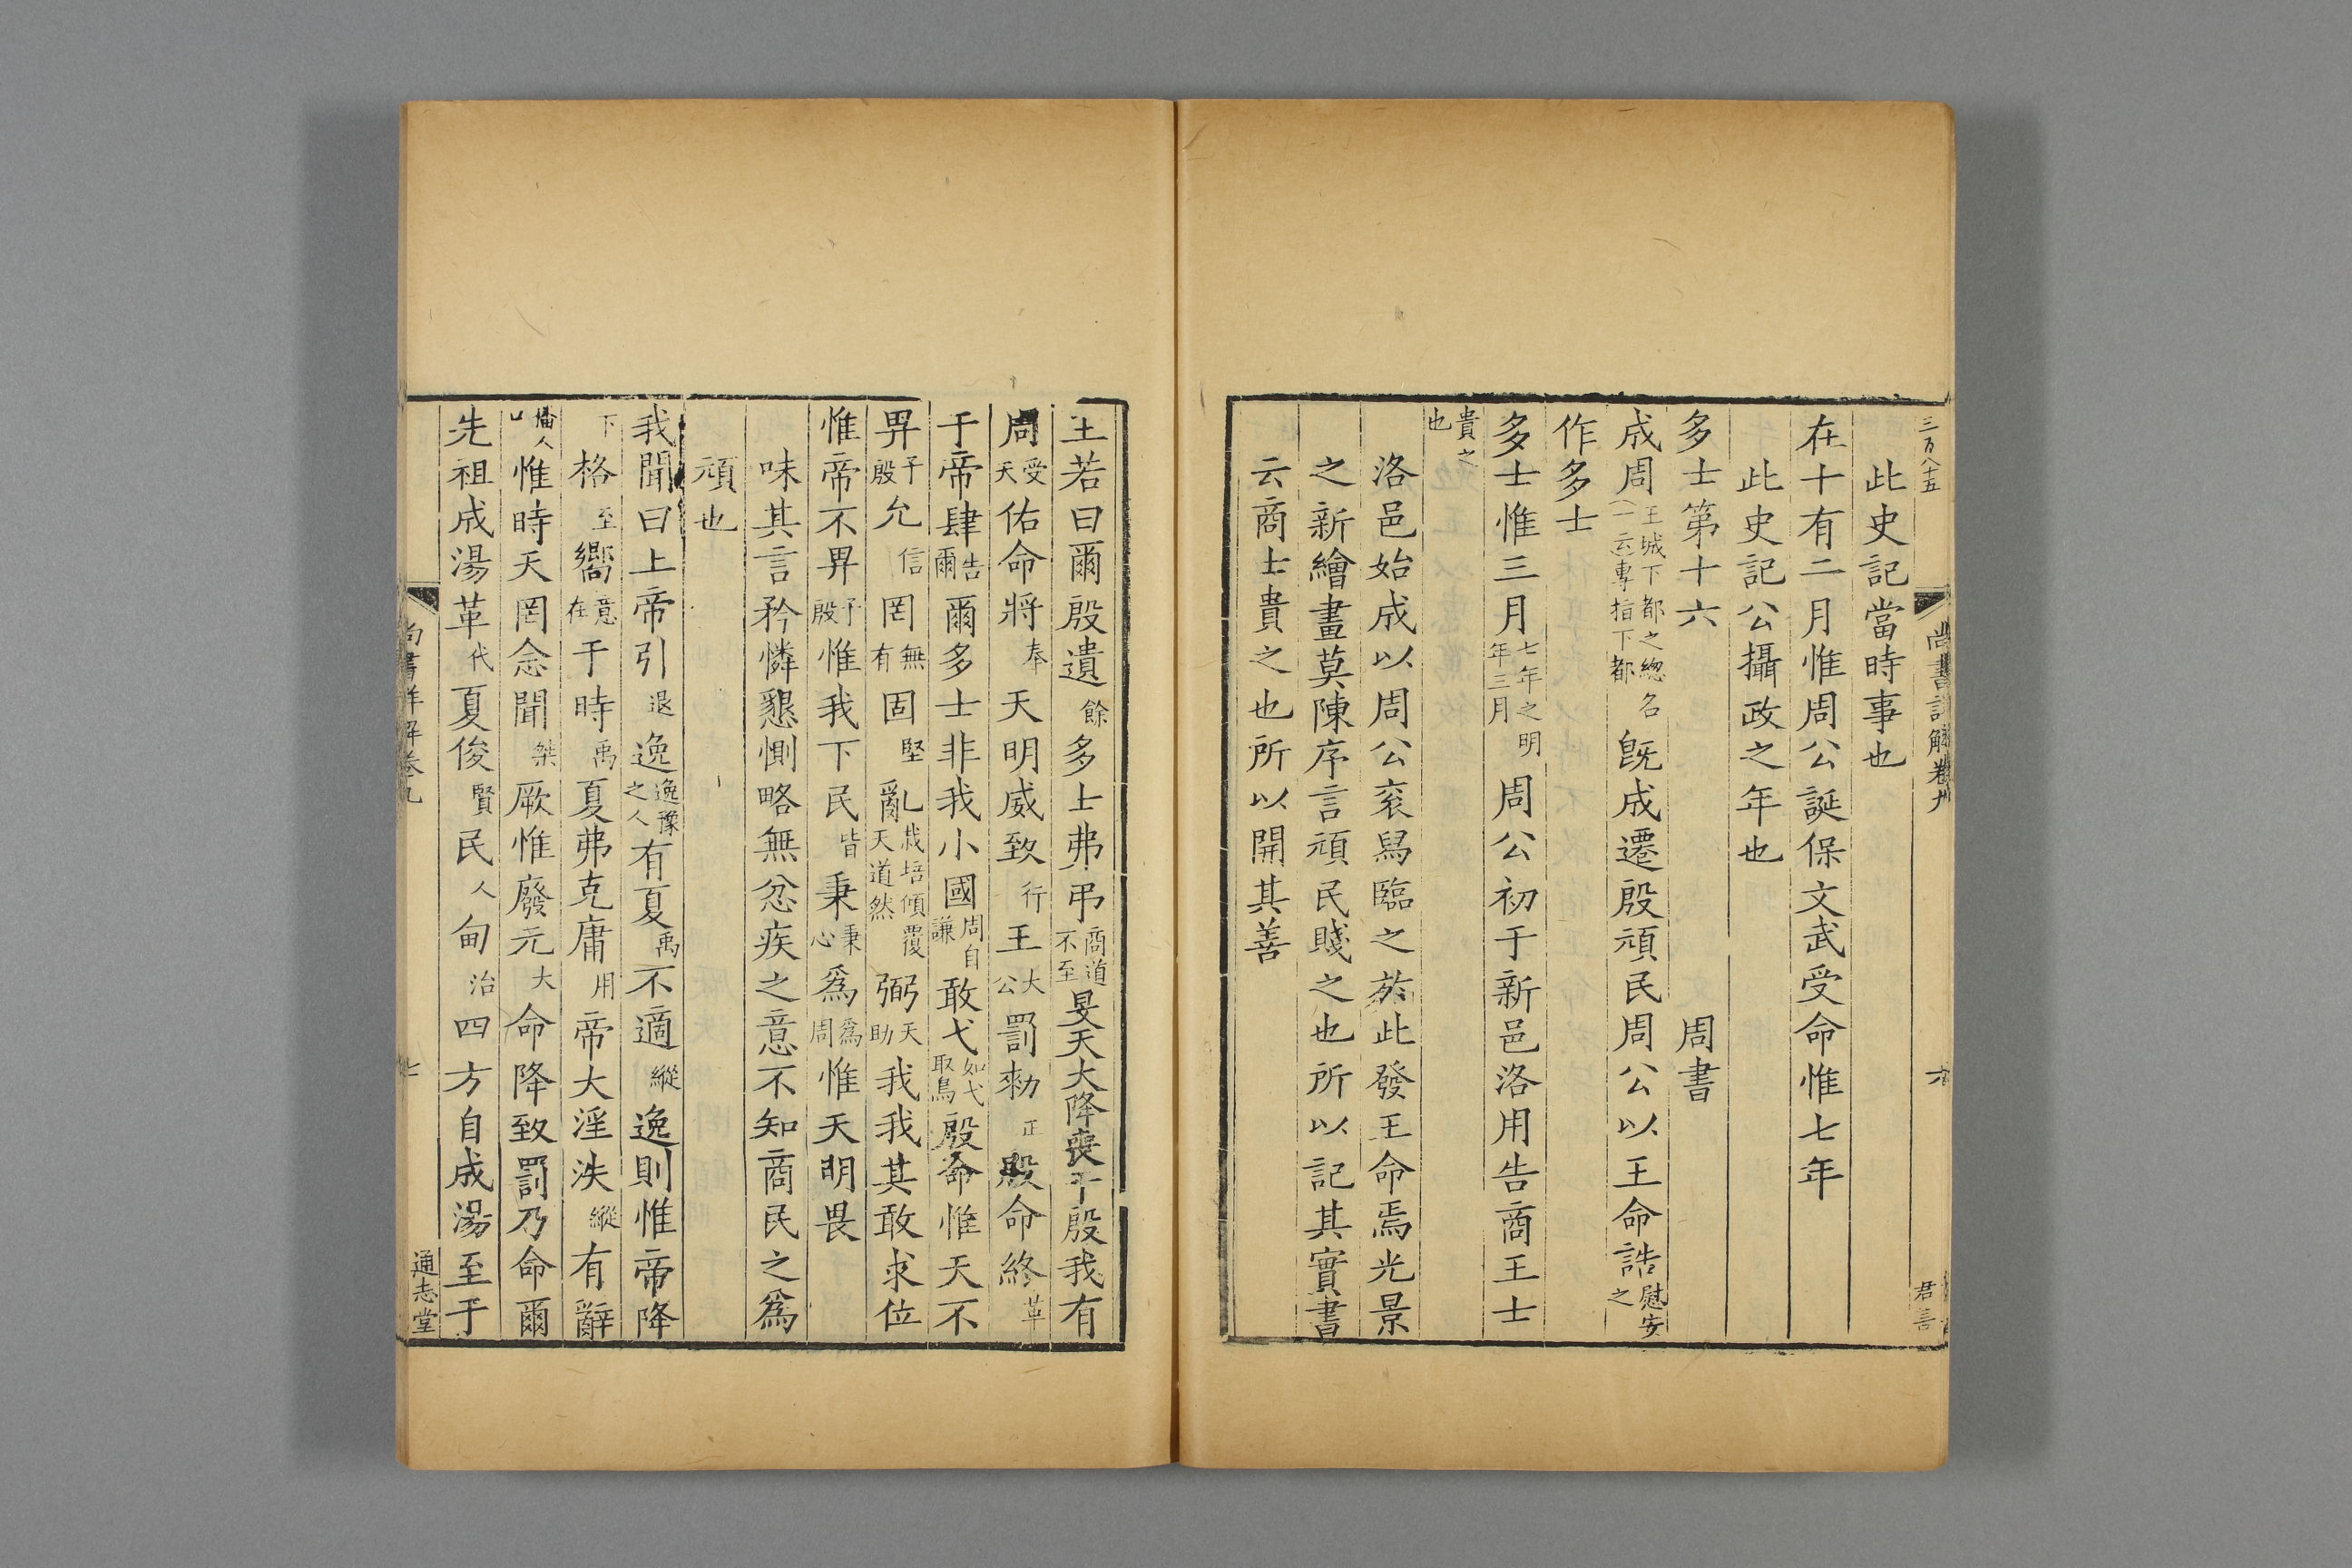 三百八十五
尚書詳解卷九
六
君言
此史記當時事也
在十有二月惟周公誕保文武受命惟七年
此史記公攝政之年也
多士第十六 周書
成周王城下都之總名一云專指下都旣成遷殷頑民周公以王命誥慰安之
作多士
多士惟三月七年之明年三月周公初于新邑洛用告商王士
貴之也
洛邑始成以周公衮舄臨之於此發王命焉光景
之新繪畫莫陳序言頑民賤之也所以記其實書
云商士貴之也所以開其善
王若曰爾殷遺餘多士弗弔商道不至旻天大降喪于殷我有
周受天佑命將奉天明威致行王大公罰勑正殷命終革
于帝肆告爾爾多士非我小國周自謙敢弋如弋取鳥殷命惟天不
畀予殷允信罔無有固堅亂栽培傾覆天道然弼天助我我其敢求位
惟帝不畀予殷惟我下民皆秉秉心爲爲周惟天明畏
味其言矜憐懇惻略無忿疾之意不知商民之爲
頑也
我聞曰上帝引退逸逸豫之人有夏禹不適縱逸則惟帝降
下格至嚮意在于時禹夏弗克庸用帝大淫泆縱有辭
人惟時天罔念聞桀厥惟廢元大命降致罰乃命爾
先祖成湯革代夏俊賢民人甸治四方自成湯至于
尚書詳解卷九
七
通志堂